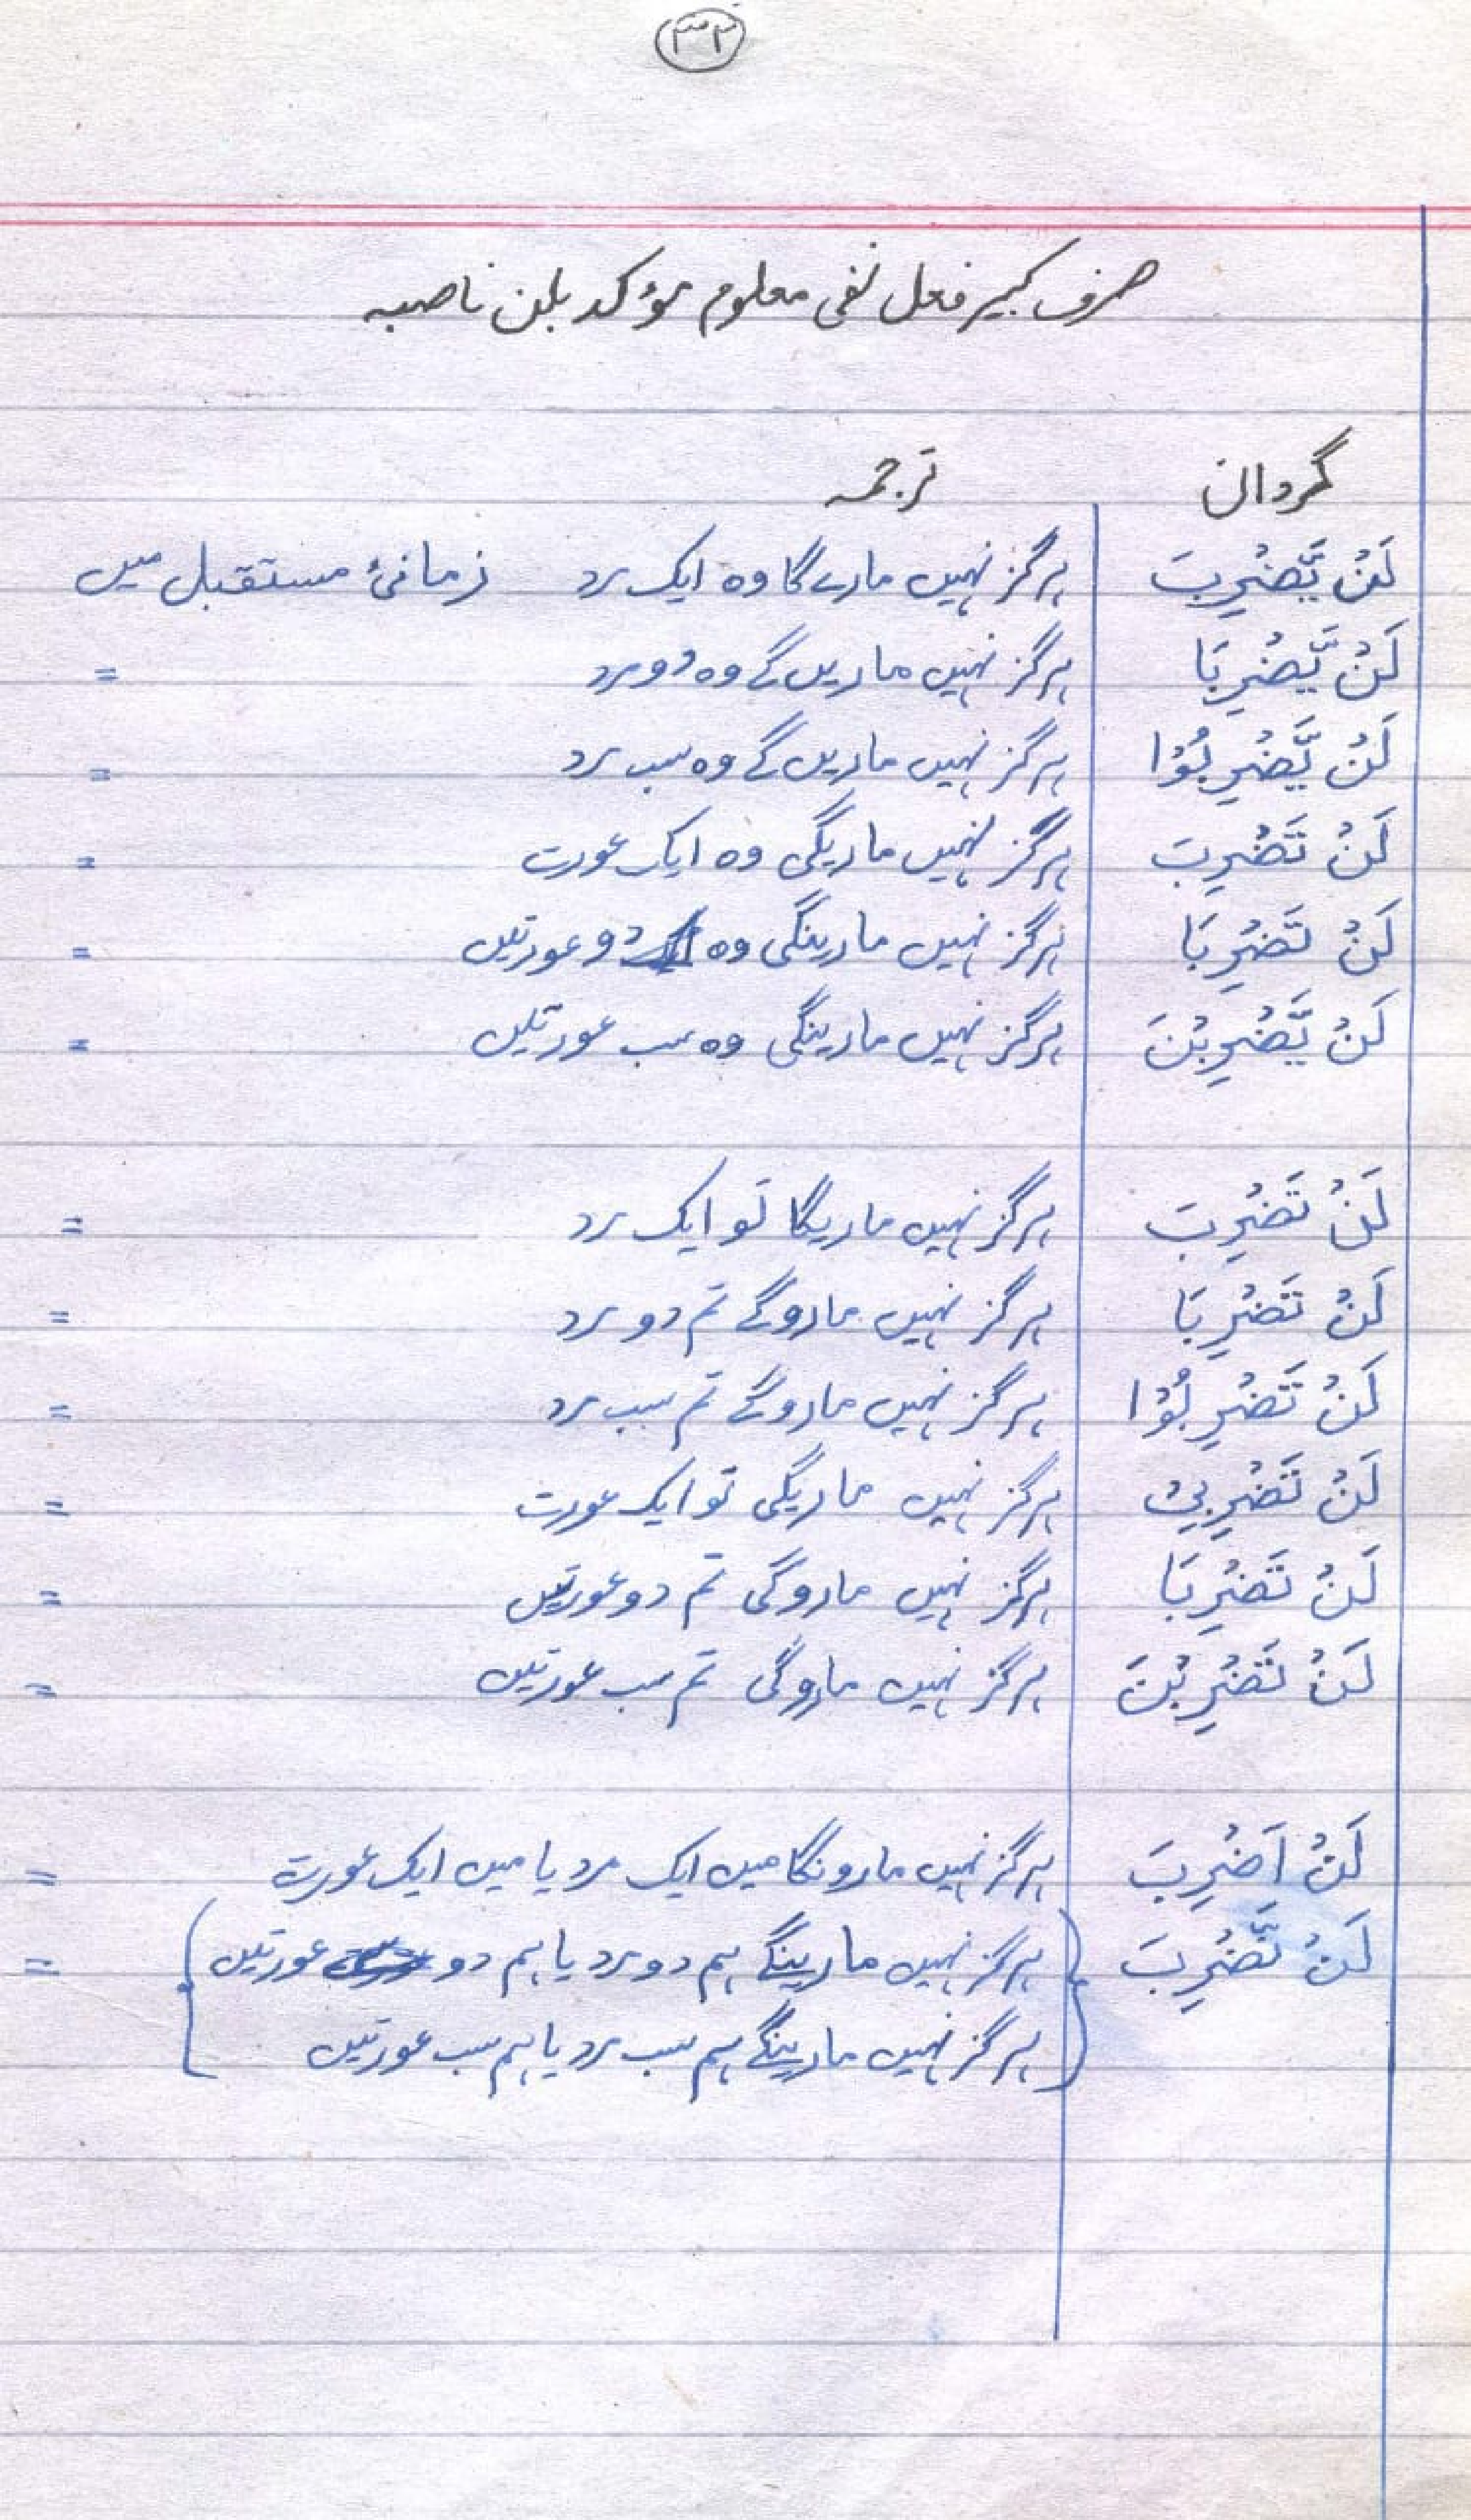 ٣٢
صرف کبیر فعل نفی معلوم مؤکد بلن ناصبہ
گردان ترجمہ
لَنْ يَّضْرِبَ ہرگز نہیں مارے گا وہ ایک مرد زمانۂ مستقبل میں
لَنْ يَّضْرِبَا ہرگز نہیں ماریں گے وہ دو مرد =
لَنْ يَّضْرِبُوْا ہرگز نہیں ماریں گے وہ سب مرد =
لَنْ تَضْرِبَ ہرگز نہیں ماریگی وہ ایک عورت =
لَنْ تَضْرِبَا ہرگز نہیں مارینگی وہ دو عورتیں =
لَنْ يَّضْرِبْنَ ہرگز نہیں مارینگی وہ سب عورتیں =
لَنْ تَضْرِبَ ہرگز نہیں ماریگا تو ایک مرد =
لَنْ تَضْرِبَا ہرگز نہیں ماروگے تم دو مرد =
لَنْ تَضْرِبُوْا ہرگز نہیں ماروگے تم سب مرد =
لَنْ تَضْرِبِيْ ہرگز نہیں ماریگی تو ایک عورت =
لَنْ تَضْرِبَا ہرگز نہیں ماروگی تم دو عورتیں =
لَنْ تَضْرِبْنَ ہرگز نہیں ماروگی تم سب عورتیں =
لَنْ اَضْرِبَ ہرگز نہیں مارونگا میں ایک مرد یا میں ایک عورت =
لَنْ نَّضْرِبَ ہرگز نہیں مارینگے ہم دو مرد یا ہم دو عورتیں =
ہرگز نہیں مارینگے ہم سب مرد یا ہم سب عورتیں